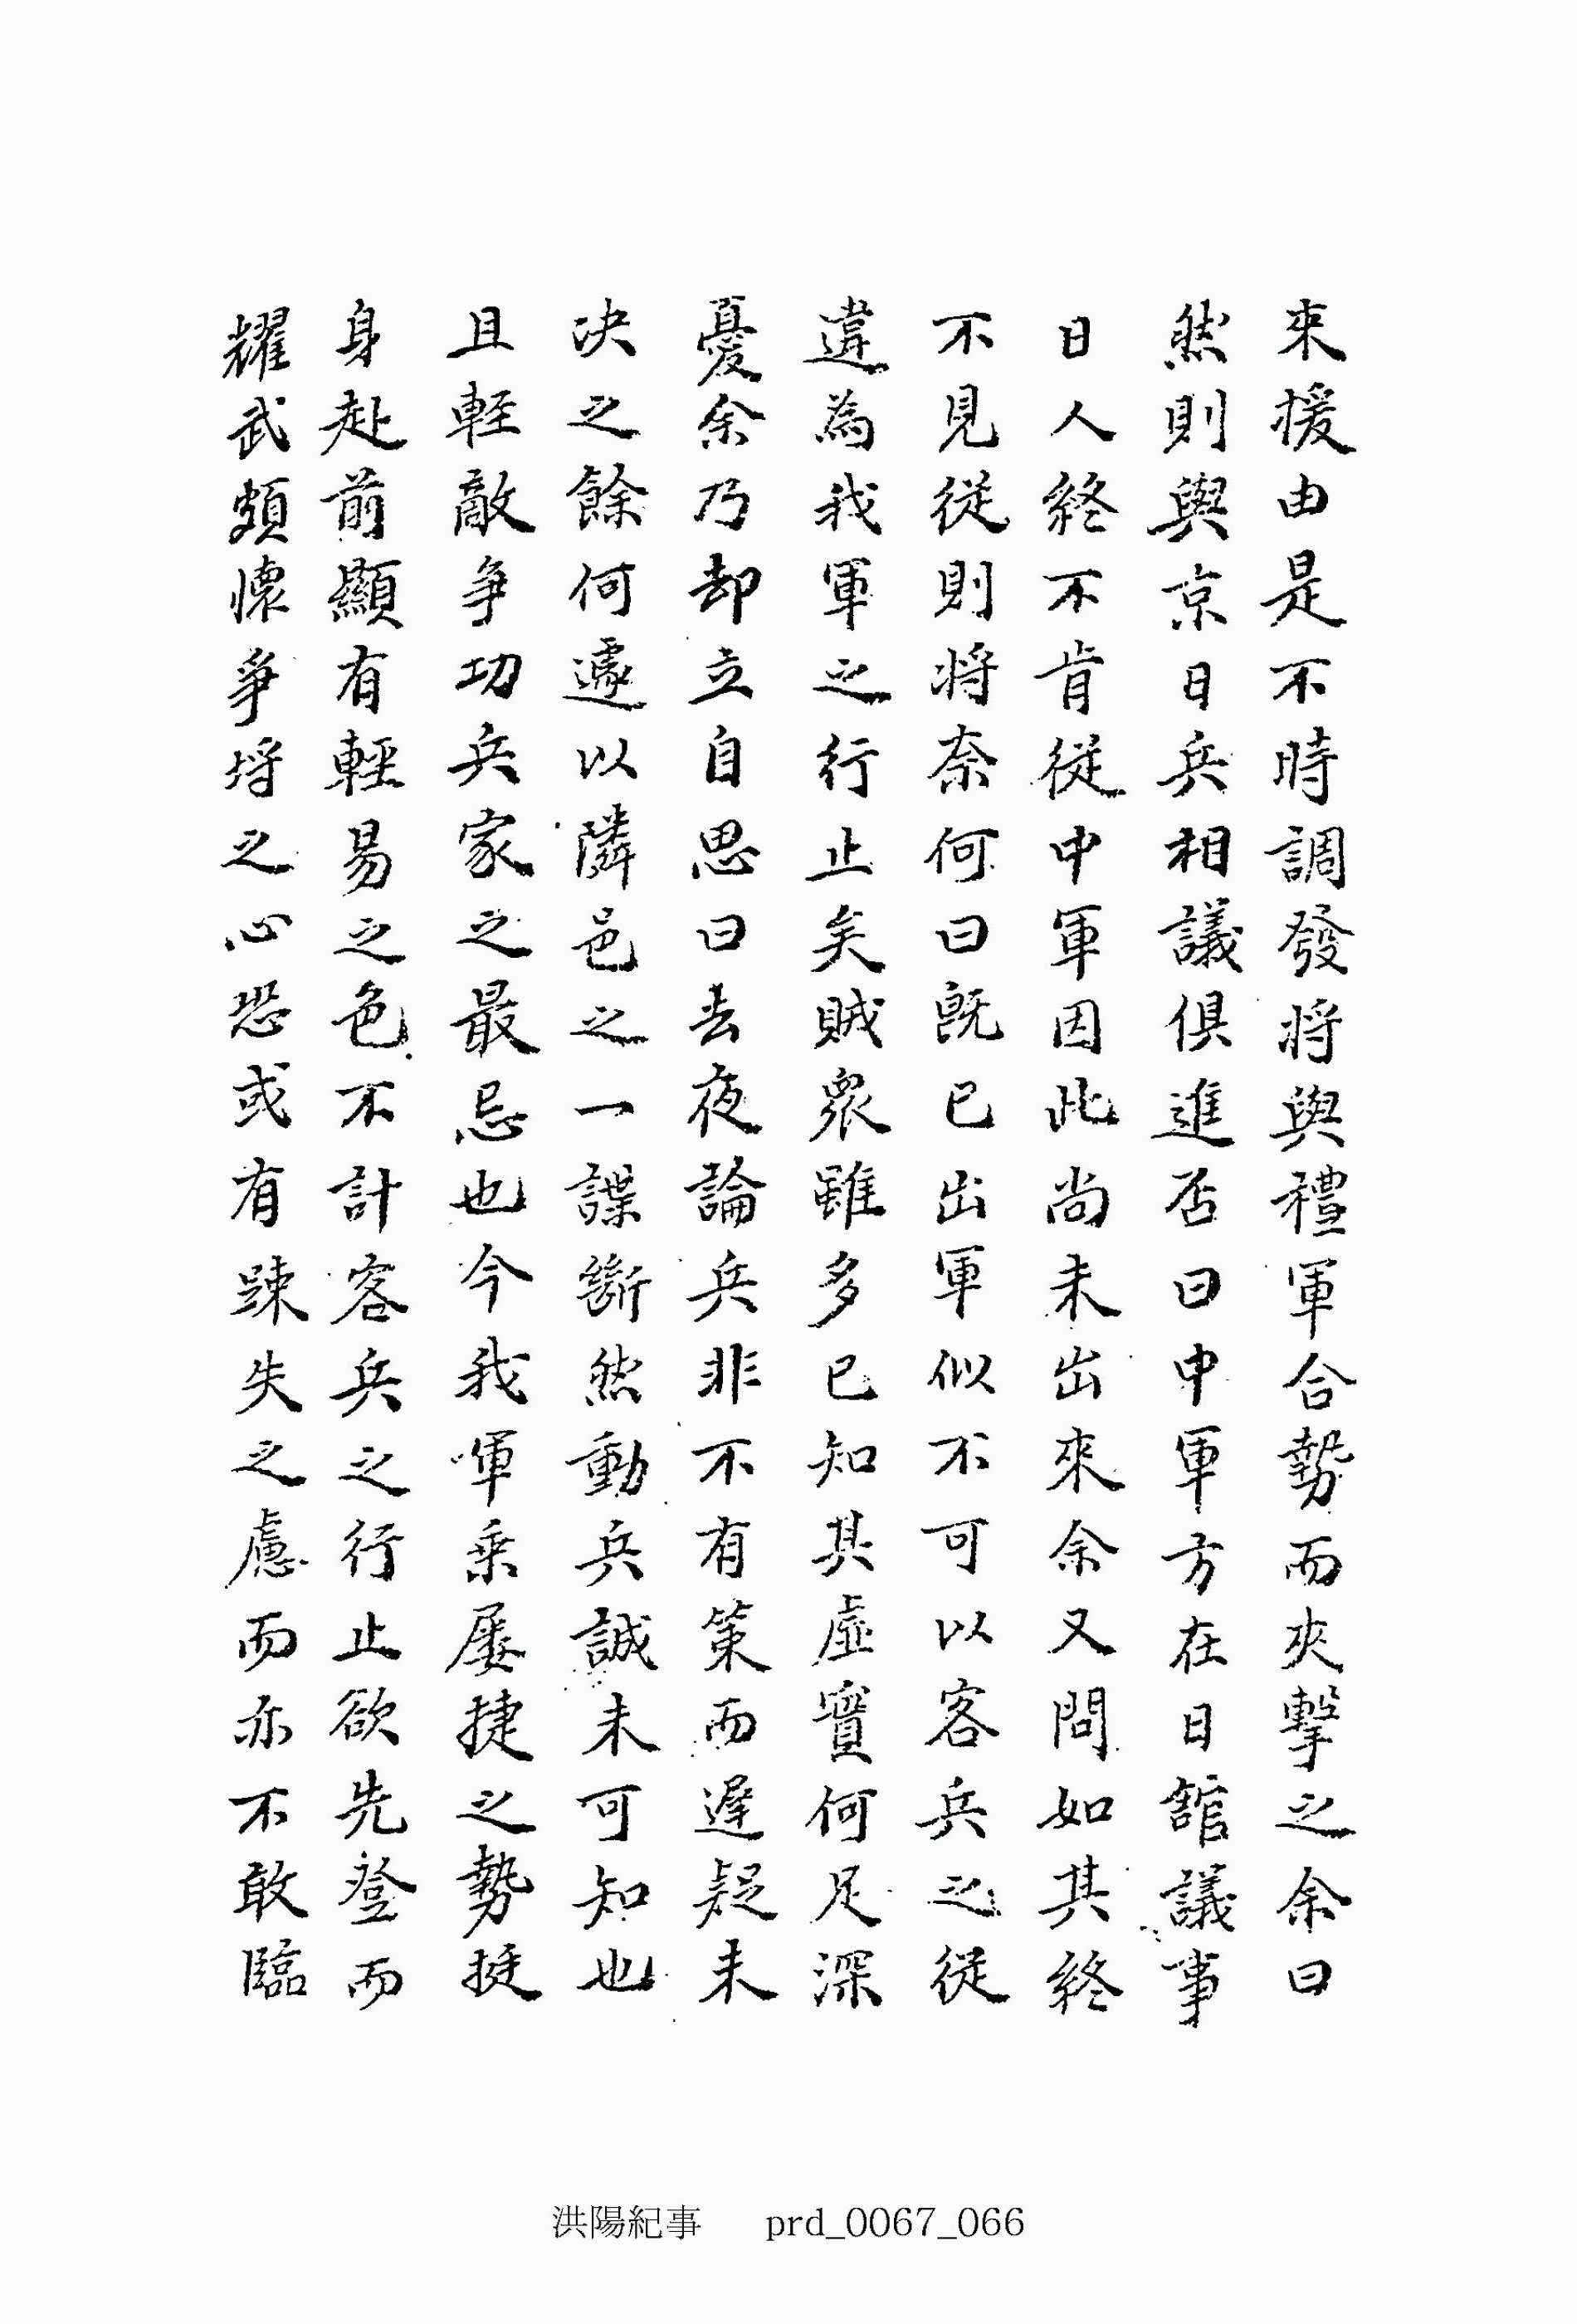 来援由是不時調發將與禮軍合勢而夾擊之余曰
然則與京日兵相議俱進否曰中軍方在日舘議事
日人終不肯從中軍因此尚未出來余又問如其終
不見從則將奈何曰既已出軍似不可以客兵之從
違為我軍之行止矣賊衆雖多已知其虛實何足深
憂余乃却立自思曰去夜論兵非不有策而遲疑未
决之餘何遽以隣邑之一諜斷然動兵誠未可知也
且輕敵争功兵家之最忌也今我軍乘屢捷之勢挺
身赴前顯有輕易之色不計客兵之行止欲先登而
耀武頗懷爭埒之心恐或有踈失之慮而亦不敢臨
洪陽紀事 prd_0067_066